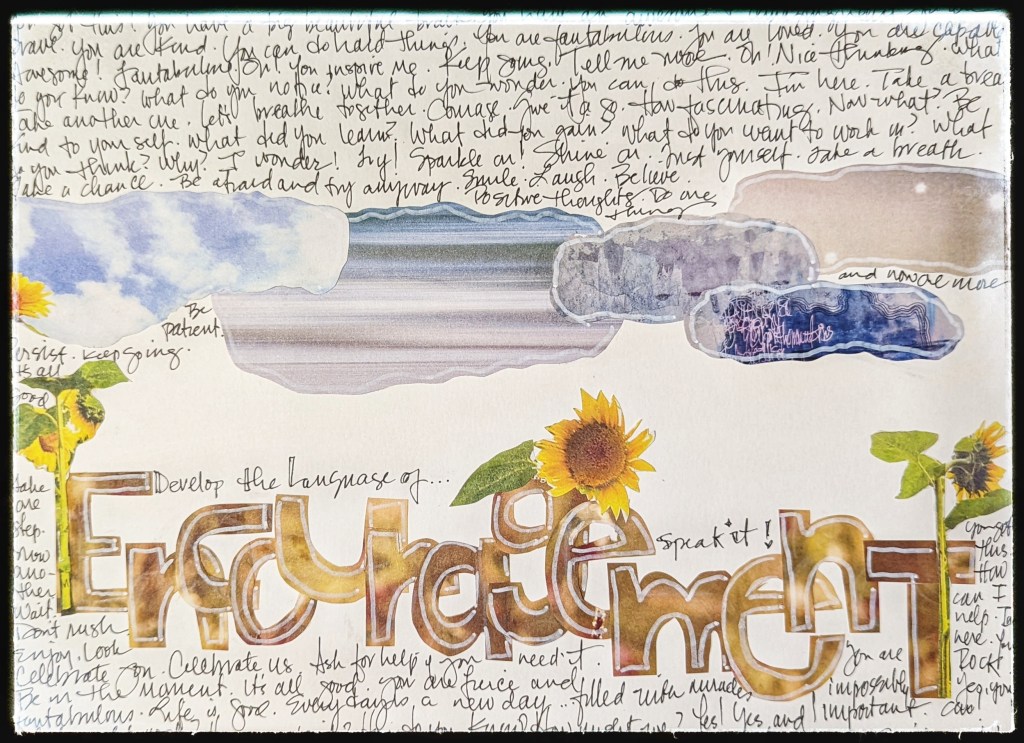 this! You have a big beautiful brain
brave. You are kind. You can do hard things. You are fantabulous. You are loved. You are capable
Awesome! Fantabulous. Oh! You inspire me. Keep going. Tell me more. Oh! Nice thinking. What
do you know? What do you notice? What do you wonder? You can do this. I'm here. Take a brea
Take another one. Let's breathe together. Courage. Give it a go. How fascinating. Now what? Be
kind to yourself. What did you learn? What did you gain? What do you want to work on? What
do you think? Why? I wonder! Try! Sparkle on! Shine on. Trust yourself. Take a breath.
Take a chance. Be afraid and try anyway. Smile. Laugh. Believe.
Positive thoughts. Do one
thing
and now one more
Be
patient.
Persist. Keep going.
It's all
Good
Develop the Language of...
Encouragement
Speak it!
Take
one
step.
Now
ano-
ther
Wait.
Don't rush
Enjoy. Look
You got
this.
How
can I
help. I'm
here. You
Rock!
Yep, you
Celebrate you. Celebrate us. Ask for help if you need it.
Be in the moment. It's all good. You are fierce and
fantabulous. Life is good. Everyday is a new day... filled with miracles
You are
impossibly
important.
do you know? How might we? Yes! Yes, and